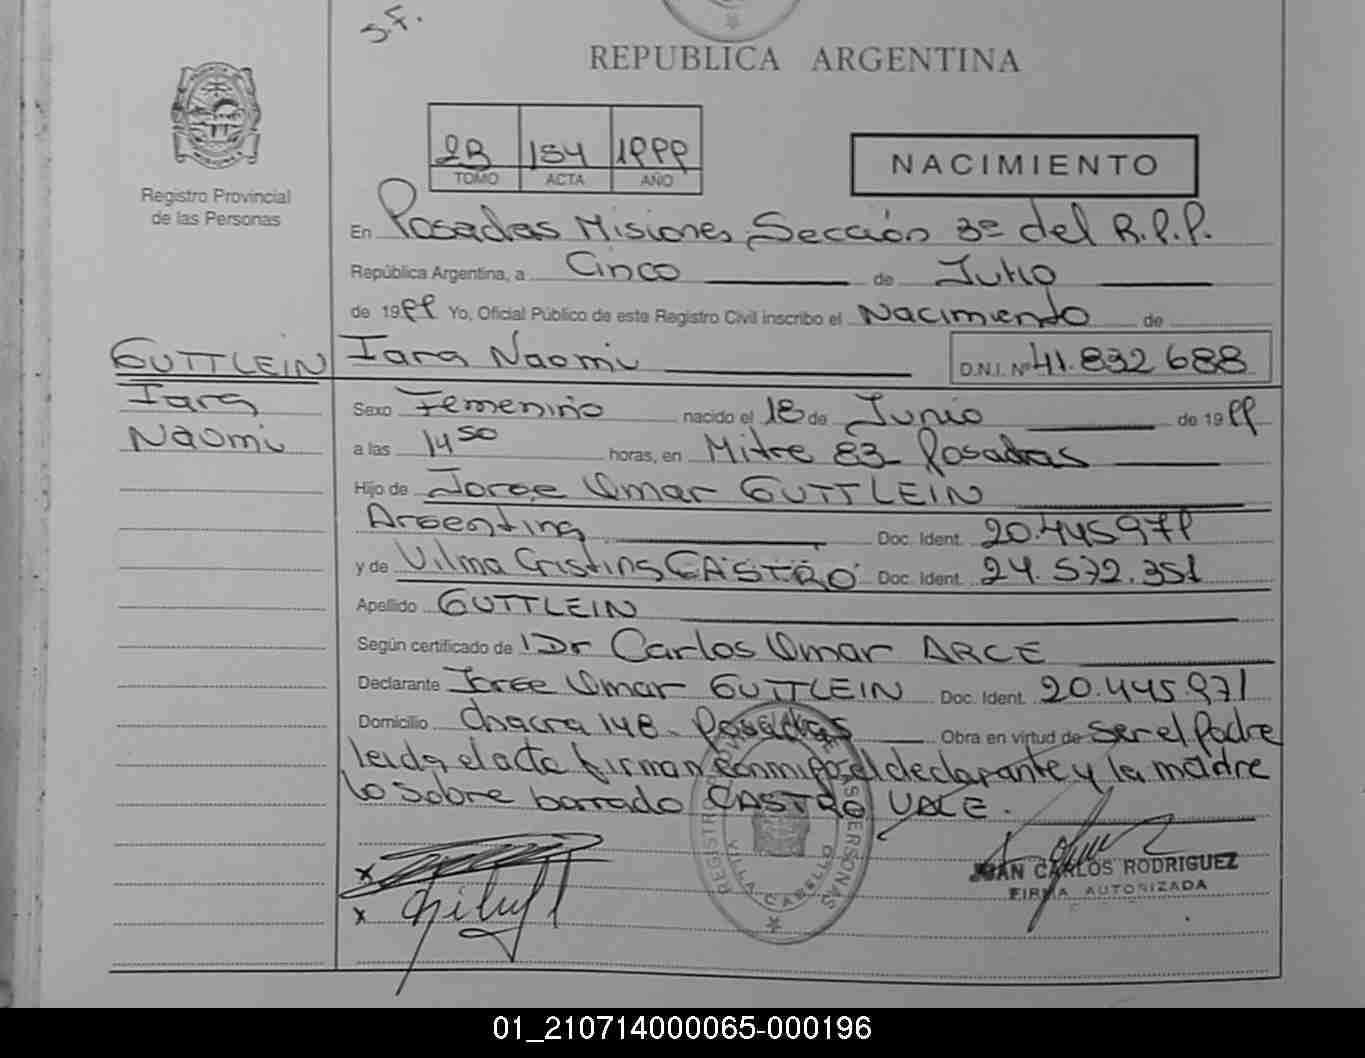 S.F.
REPUBLICA ARGENTINA
Registro Provincial
de las Personas
2B 154 1999
TOMO ACTA AÑO
NACIMIENTO
En Posadas Misiones, Sección 3º del R.P.P.
República Argentina, a Cinco de Julio
de 1999 Yo, Oficial Público de este Registro Civil inscribo el Nacimiento de
GUTTLEIN Iara Naomi D.N.I. Nº 41.832.688
Iara
Naomi
Sexo Femenino nacido el 18 de Junio de 1999
a las 14 50 horas, en Mitre 83 Posadas
Hijo de Jorge Omar GUTTLEIN
Argentina Doc. Ident. 20.445.971
y de Vilma Cristina CASTRO Doc. Ident. 24.572.351
Apellido GUTTLEIN
Según certificado de Dr Carlos Omar ARCE
Declarante Jorge Omar GUTTLEIN Doc. Ident. 20.445.971
Domicilio Chacra 148 - Posadas Obra en virtud de ser el Padre
leida el acta firman conmigo el declarante y la madre
lo sobre borrado CASTRO VALE.
REGISTRO PROV. DE LAS PERSONAS
VILLA CABELLO
x
x
JUAN CARLOS RODRIGUEZ
FIRMA AUTORIZADA
01_210714000065-000196